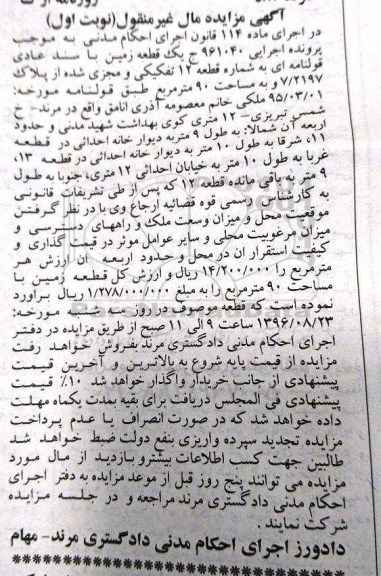 آگهی مزایده مال غیرمنقول(نوبت اول)
در اجرای ماده ۱۱۴ قانون اجرای احکام مدنی به موجب
پرونده اجرایی ۹۶۱۰۴۰ ج یک قطعه زمین با سند عادی
قولنامه ای به شماره قطعه ۱۲ تفکیکی و مجزی شده از پلاک
۷/۲۱۹۷ و به مساحت ۹۰ مترمربع طبق قولنامه مورخه:
۹۵/۰۳/۰۱ ملکی خانم معصومه آذری اناقق واقع در مرند- خ
شمس تبریزی- ۱۲ متری کوی بهداشت شهید مدنی و حدود
اربعه آن شمالا: به طول ۹ متر به دیوار خانه احداثی در قطعه
۱۱، شرقا به طول ۱۰ متر به دیوار خانه احداثی در قطعه ۱۳،
غربا به طول ۱۰ متر به خیابان احداثی ۱۲ متری، جنوبا به طول
۹ متر به باقی مانده قطعه ۱۲ که پس از طی تشریفات قانونی
به کارشناس رسمی قوه قضائیه ارجاع وی با در نظر گرفتن
موقعیت محل و میزان وسعت ملک و راههای دسترسی و
میزان مرغوبیت محلی و سایر عوامل موثر در قیمت گذاری و
کیفیت استقرار ان در محل و حدود اربعه آن ارزش هر
مترمربع را ۱۴/۲۰۰/۰۰۰ ریال و ارزش کل قطعه زمین با
مساحت ۹۰ مترمربع را به مبلغ ۱/۲۷۸/۰۰۰/۰۰۰ ریال براورد
نموده است که قطعه موصوف در روز سه شنبه مورخه:
۱۳۹۶/۰۸/۲۳ ساعت ۹ الی ۱۱ صبح از طریق مزایده در دفتر
اجرای احکام مدنی دادگستری مرند بفروش خواهد رفت
مزایده از قیمت پایه شروع به بالاترین و آخرین قیمت
پیشنهادی از جانب خریدار واگذار خواهد شد ۱۰٪ قیمت
پیشنهادی فی المجلس دریافت برای بقیه بمدت یکماه مهلت
داده خواهد شد که در صورت انصراف یا عدم پرداخت
مزایده تجدید سپرده واریزی بنفع دولت ضبط خواهد شد
طالبین جهت کسب اطلاعات بیشترو بازدید از مال مورد
مزایده می توانند پنج روز قبل از موعد مزایده به دفتر اجرای
احکام مدنی دادگستری مرند مراجعه و در جلسه مزایده
شرکت نمایند.
دادورز اجرای احکام مدنی دادگستری مرند- مهام